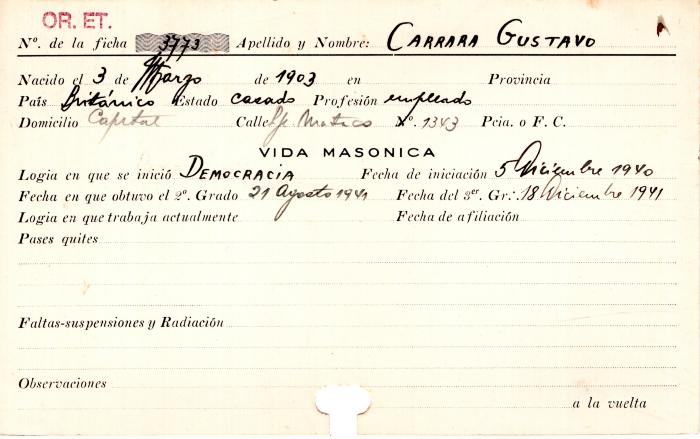 OR. ET.
Nº. de la ficha 3773 Apellido y Nombre: CARRARA GUSTAVO
Nacido el 3 de Marzo de 1903 en Provincia
País Británico Estado casado Profesión empleado
Domicilio Capital Calle Nº. 1343 Pcia. o F. C.
VIDA MASONICA
Logia en que se inició DEMOCRACIA Fecha de iniciación 5 Diciembre 1940
Fecha en que obtuvo el 2º. Grado 21 Agosto 1941 Fecha del 3er. Gr∴ 18 Diciembre 1941
Logia en que trabaja actualmente Fecha de afiliación
Pases quites
Faltas-suspensiones y Radiación
Observaciones
a la vuelta